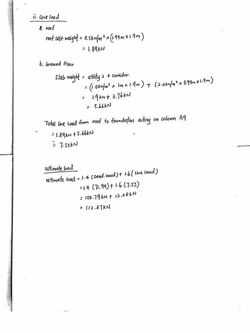 ii Live load
a. roof
roof self-weight = 0.5kN/m² × (1.99m × 1.9m)
= 1.89kN
b. Ground floor
Slab weight = utility 2 + corridor
= (1.0kN/m² × 1m × 1.9m) + (2.0kN/m² × 0.99m × 1.9m)
= 1.9kN + 3.76kN
= 5.66kN
Total live load from roof to foundation acting on column A9
= 1.89kN + 5.66kN
= 7.55kN
Ultimate load
Ultimate load = 1.4 (Dead load) + 1.6 (Live load)
= 1.4 (71.99) + 1.6 (7.55)
= 100.79kN + 12.08kN
= 112.87kN